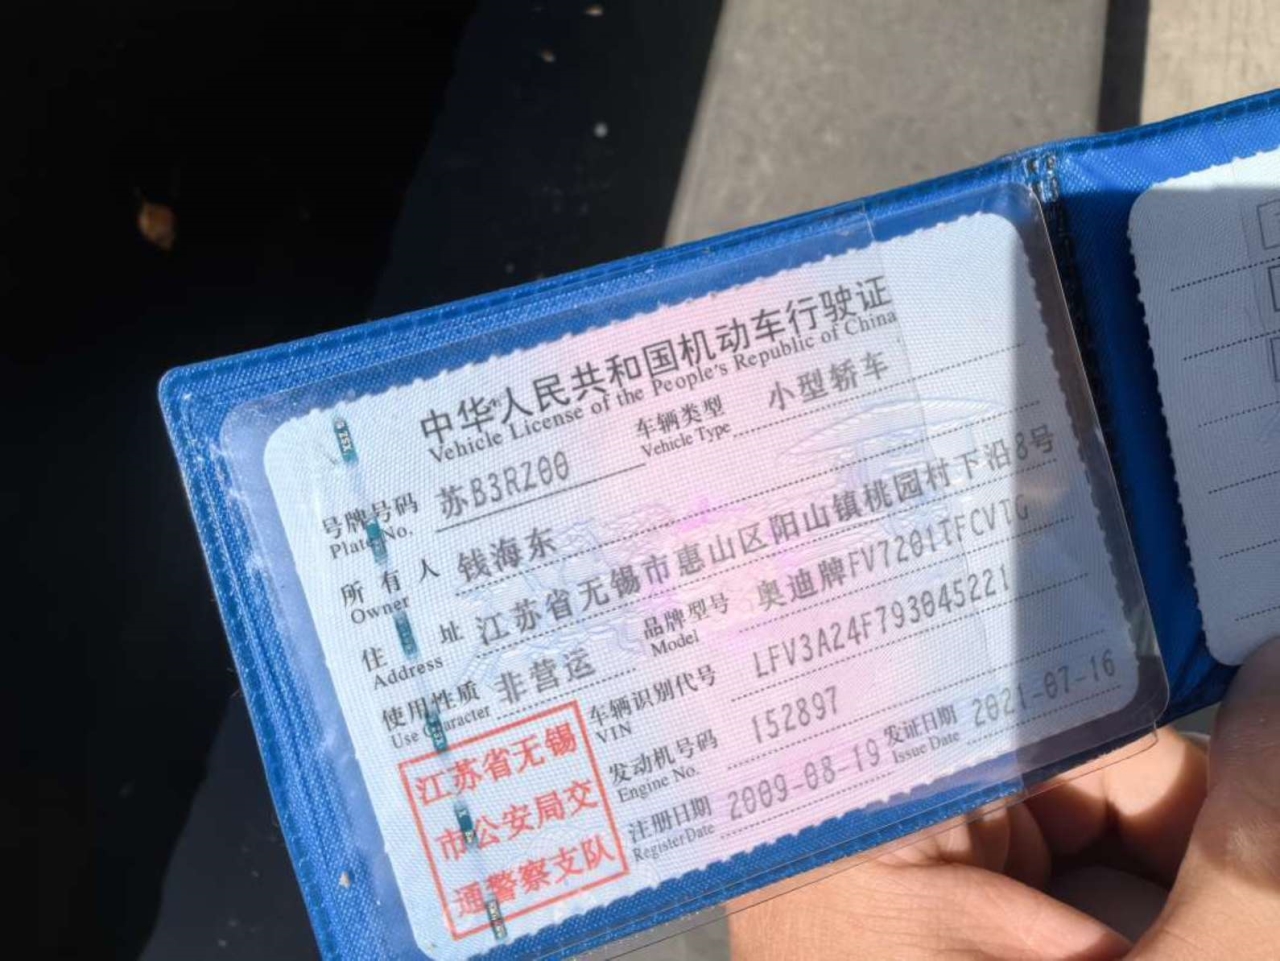 中华人民共和国机动车行驶证
Vehicle License of the People's Republic of China
号牌号码 苏B3RZ00 车辆类型 小型轿车
Plate No. Vehicle Type
所有人 钱海东
Owner
住址 江苏省无锡市惠山区阳山镇桃园村下沿8号
Address
使用性质 非营运 品牌型号 奥迪牌FV7201TFCVTG
Use Character Model
车辆识别代号 LFV3A24F793045221
VIN
发动机号码 152897
Engine No.
注册日期 2009-08-19 发证日期 2021-07-16
Register Date Issue Date
江苏省无锡
市公安局交
通警察支队